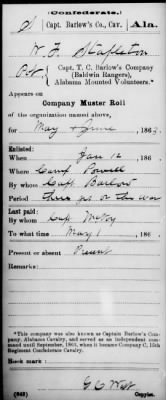 (Confederate.)
S Capt. Barlow's Co., Cav. Ala.
W. F. Stapleton
Pvt, Capt. T. C. Barlow's Company
(Baldwin Rangers),
Alabama Mounted Volunteers.*
Appears on
Company Muster Roll
of the organization named above,
for May & June, 1862.
Enlisted:
When Jan 12, 186
Where Camp Powell
By whom Capt Barlow
Period three yrs or the war
Last paid:
By whom Capt McVoy
To what time May 1, 186
Present or absent Present
Remarks:
*This company was also known as Captain Barlow's Com-
pany, Alabama Cavalry, and served as an independent com-
mand until September, 1863, when it became Company C, 15th
Regiment Confederate Cavalry.
Book mark:
G C West
(642) Copyist.